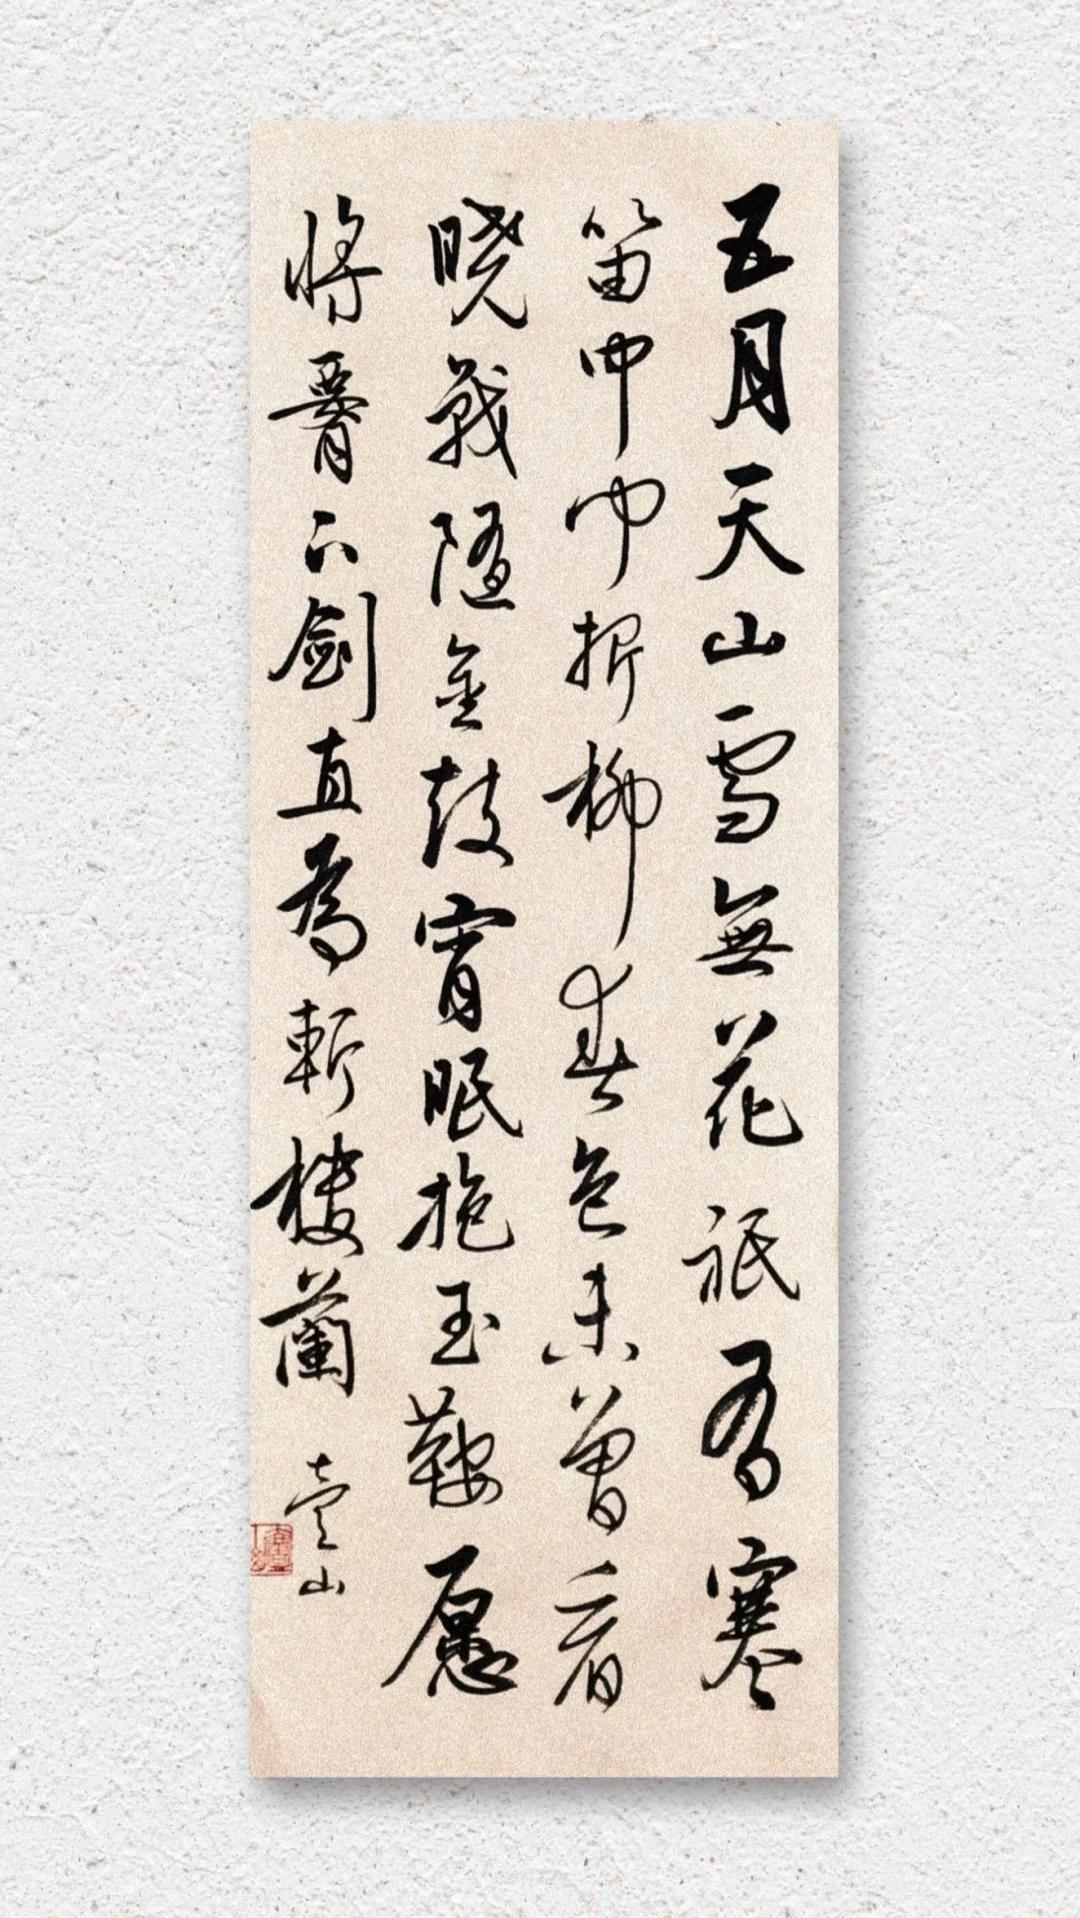 五月天山雪無花祇有寒
笛中聞折柳春色未曾看
晓戰隨金鼓宵眠抱玉鞍愿
將腰下劍直為斬樓蘭